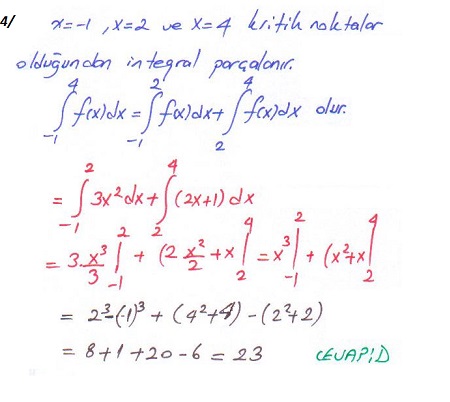 4/ x=-1, x=2 ve x=4 kritik noktalar
olduğundan integral parçalanır.
∫_{-1}^{4} f(x)dx = ∫_{-1}^{2} f(x)dx + ∫_{2}^{4} f(x)dx olur.
= ∫_{-1}^{2} 3x² dx + ∫_{2}^{4} (2x+1) dx
= 3·x³/3 |_{-1}^{2} + (2 x²/2 + x |_{2}^{4} = x³ |_{-1}^{2} + (x²+x |_{2}^{4}
= 2³-(-1)³ + (4²+4) - (2²+2)
= 8+1+20-6 = 23 CEVAP: D